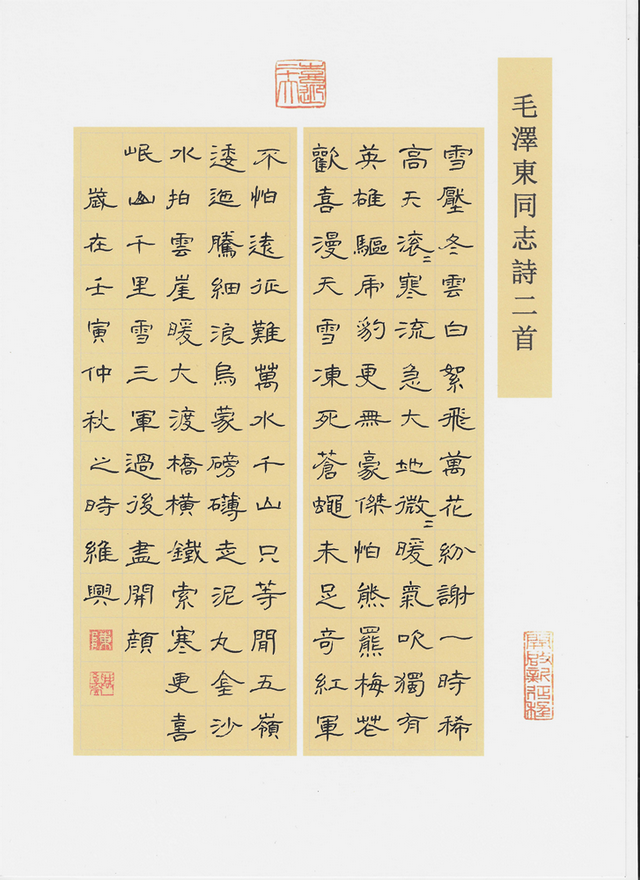 喜迎二十大
毛澤東同志詩二首
雪壓冬雲白絮飛萬花紛謝一時稀
高天滚〻寒流急大地微〻暖氣吹獨有
英雄驅虎豹更無豪傑怕熊羆梅花
歡喜漫天雪凍死蒼蠅未足奇紅軍
不怕遠征難萬水千山只等閒五嶺
逶迤騰細浪烏蒙磅礴走泥丸金沙
水拍雲崖暖大渡橋橫鐵索寒更喜
岷山千里雪三軍過後盡開顏
歲在壬寅仲秋之時維興
開啟新征程